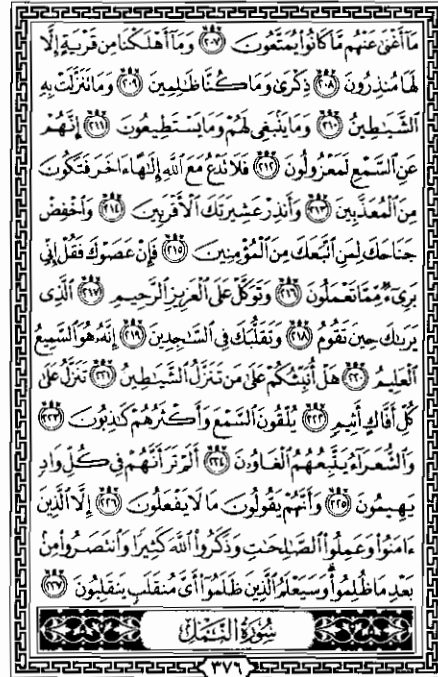 مَآ أَغْنَىٰ عَنْهُم مَّا كَانُوا۟ يُمَتَّعُونَ ٢٠٧ وَمَآ أَهْلَكْنَا مِن قَرْيَةٍ إِلَّا
لَهَا مُنذِرُونَ ٢٠٨ ذِكْرَىٰ وَمَا كُنَّا ظَـٰلِمِينَ ٢٠٩ وَمَا تَنَزَّلَتْ بِهِ
ٱلشَّيَـٰطِينُ ٢١٠ وَمَا يَنۢبَغِى لَهُمْ وَمَا يَسْتَطِيعُونَ ٢١١ إِنَّهُمْ
عَنِ ٱلسَّمْعِ لَمَعْزُولُونَ ٢١٢ فَلَا تَدْعُ مَعَ ٱللَّهِ إِلَـٰهًا ءَاخَرَ فَتَكُونَ
مِنَ ٱلْمُعَذَّبِينَ ٢١٣ وَأَنذِرْ عَشِيرَتَكَ ٱلْأَقْرَبِينَ ٢١٤ وَٱخْفِضْ
جَنَاحَكَ لِمَنِ ٱتَّبَعَكَ مِنَ ٱلْمُؤْمِنِينَ ٢١٥ فَإِنْ عَصَوْكَ فَقُلْ إِنِّى
بَرِىٓءٌ مِّمَّا تَعْمَلُونَ ٢١٦ وَتَوَكَّلْ عَلَى ٱلْعَزِيزِ ٱلرَّحِيمِ ٢١٧ ٱلَّذِى
يَرَىٰكَ حِينَ تَقُومُ ٢١٨ وَتَقَلُّبَكَ فِى ٱلسَّـٰجِدِينَ ٢١٩ إِنَّهُۥ هُوَ ٱلسَّمِيعُ
ٱلْعَلِيمُ ٢٢٠ هَلْ أُنَبِّئُكُمْ عَلَىٰ مَن تَنَزَّلُ ٱلشَّيَـٰطِينُ ٢٢١ تَنَزَّلُ عَلَىٰ
كُلِّ أَفَّاكٍ أَثِيمٍ ٢٢٢ يُلْقُونَ ٱلسَّمْعَ وَأَكْثَرُهُمْ كَـٰذِبُونَ ٢٢٣
وَٱلشُّعَرَآءُ يَتَّبِعُهُمُ ٱلْغَاوُۥنَ ٢٢٤ أَلَمْ تَرَ أَنَّهُمْ فِى كُلِّ وَادٍ
يَهِيمُونَ ٢٢٥ وَأَنَّهُمْ يَقُولُونَ مَا لَا يَفْعَلُونَ ٢٢٦ إِلَّا ٱلَّذِينَ
ءَامَنُوا۟ وَعَمِلُوا۟ ٱلصَّـٰلِحَـٰتِ وَذَكَرُوا۟ ٱللَّهَ كَثِيرًا وَٱنتَصَرُوا۟ مِنۢ
بَعْدِ مَا ظُلِمُوا۟ ۗ وَسَيَعْلَمُ ٱلَّذِينَ ظَلَمُوٓا۟ أَىَّ مُنقَلَبٍ يَنقَلِبُونَ ٢٢٧
سُورَةُ النَّمْلِ
٣٧٦